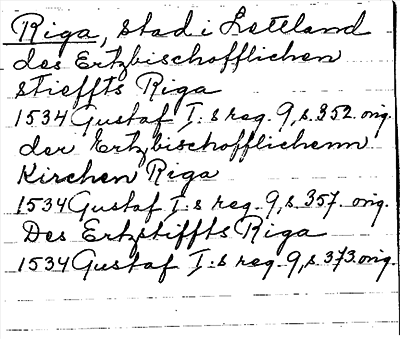 Riga, stad i Lettland
des Ertzbischofflichen
stieffts Riga
1534 Gustaf I:s reg. 9, s. 352. orig.
der Ertzbischofflichenn
Kirchen Riga
1534 Gustaf I:s reg. 9, s. 357. orig.
Des Ertzstiffts Riga
1534 Gustaf I:s reg. 9, s. 373. orig.